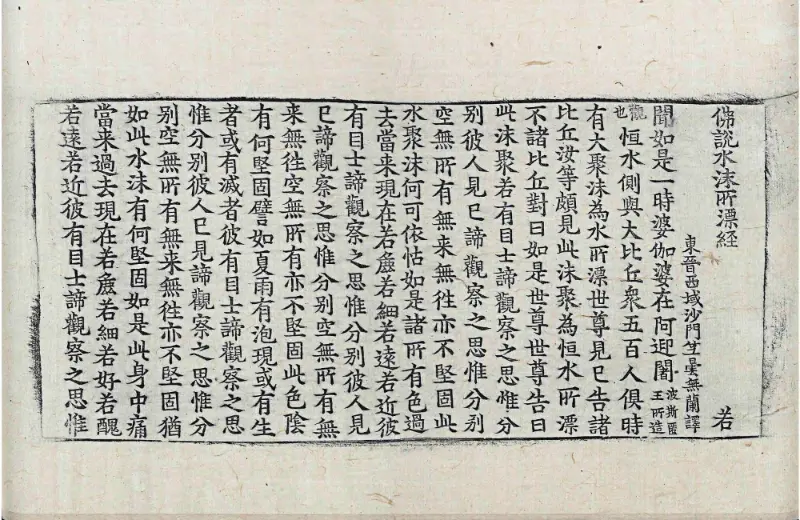 佛說水沫所漂經 若
東晉西域沙門竺曇無蘭譯
聞如是一時婆伽婆在阿迎闍波斯匿王所造
觀也恒水側與大比丘衆五百人俱時
有大聚沫為水所漂世尊見已告諸
比丘汝等頗見此沫聚為恒水所漂
不諸比丘對曰如是世尊世尊告曰
此沫聚若有目士諦觀察之思惟分
別彼人見已諦觀察之思惟分別
空無所有無来無徃亦不堅固此
水聚沫何可依怙如是諸所有色過
去當来現在若麁若細若遠若近彼
有目士諦觀察之思惟分別彼人見
已諦觀察之思惟分別空無所有無
来無徃空無所有亦不堅固此色陰
有何堅固譬如夏雨有泡現或有生
者或有滅者彼有目士諦觀察之思
惟分別彼人已見諦觀察之思惟分
別空無所有無来無徃亦不堅固猶
如此水沫有何堅固如是此身中痛
當来過去現在若麁若細若好若醜
若遠若近彼有目士諦觀察之思惟